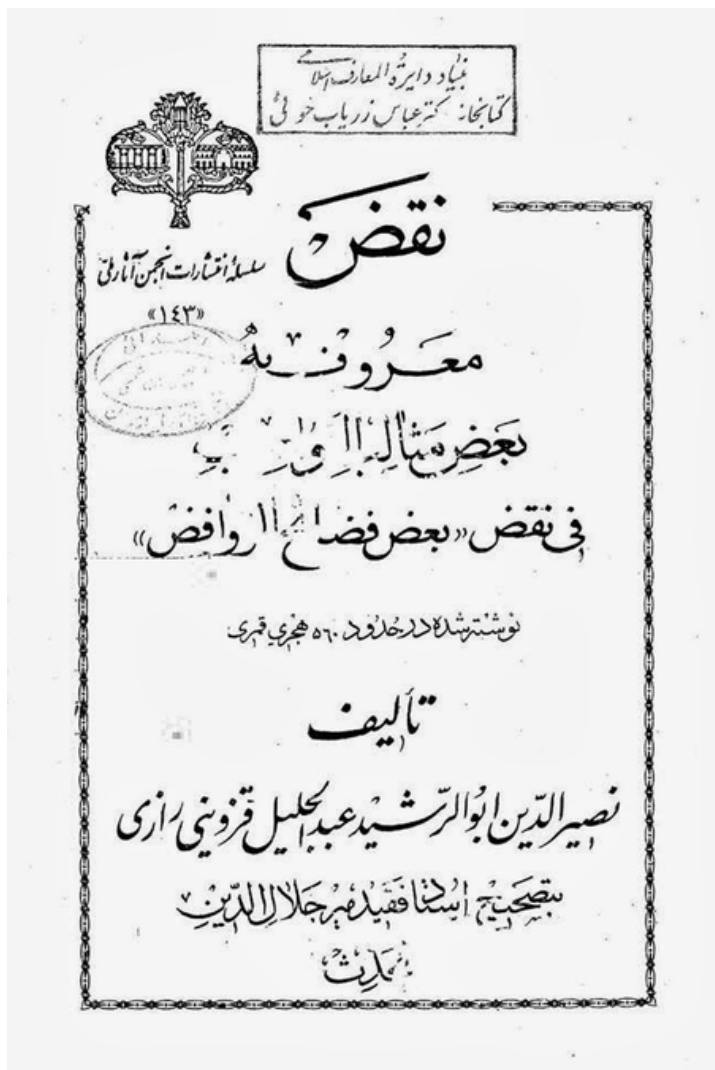 بنیاد دایرة المعارف اسلامی
کتابخانه دکتر عباس زریاب خوئی
نقض
سلسلهٔ انتشارات انجمن آثار ملّی
«۱٤۳»
معروف به
بعض مثالب النواصب
فی نقض «بعض فضائح الروافض»
نوشته شده در حدود ٥٦٠ هجری قمری
تألیف
نصیر الدّین ابوالرّشید عبدالجلیل قزوینی رازی
بتصحیح استاد فقید میر جلال الدّین
محدث